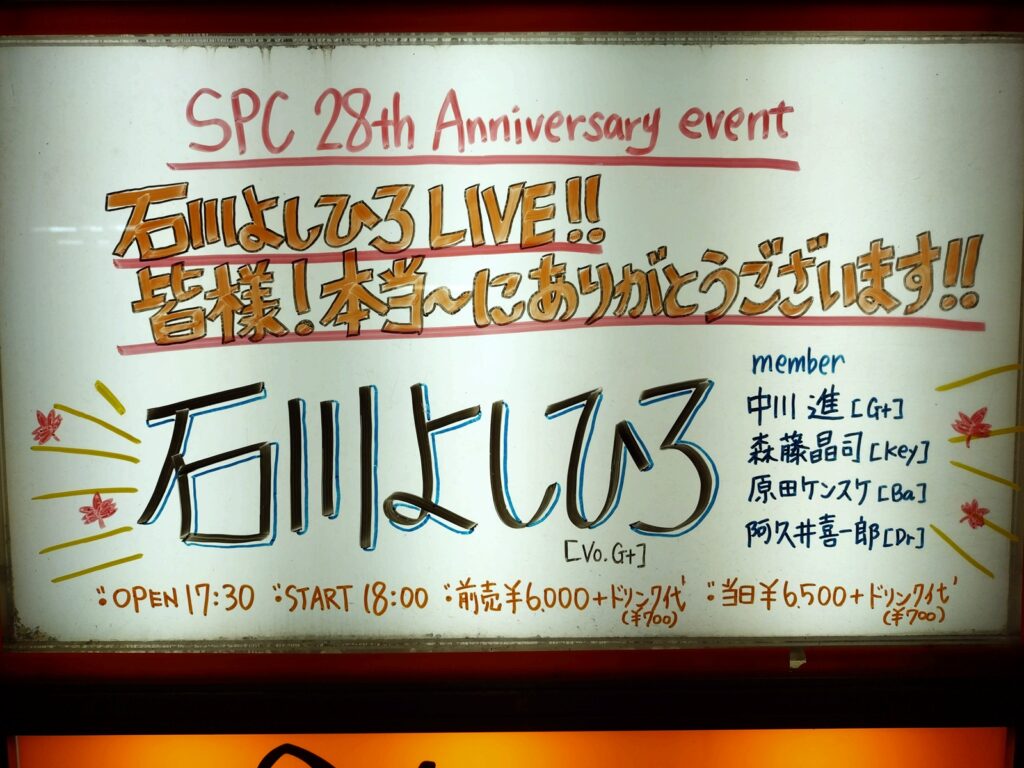 SPC 28th Anniversary event
石川よしひろ LIVE!!
皆様!本当〜にありがとうございます!!
石川よしひろ
[Vo.Gt]
member
中川 進 [Gt]
森藤晶司 [Key]
原田ケンスケ [Ba]
阿久井喜一郎 [Dr]
:OPEN 17:30 :START 18:00 :前売¥6.000+ドリンク代 :当日¥6.500+ドリンク代
(¥700) (¥700)